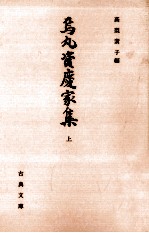 高梨素子編
烏丸資慶家集
上
古典文庫